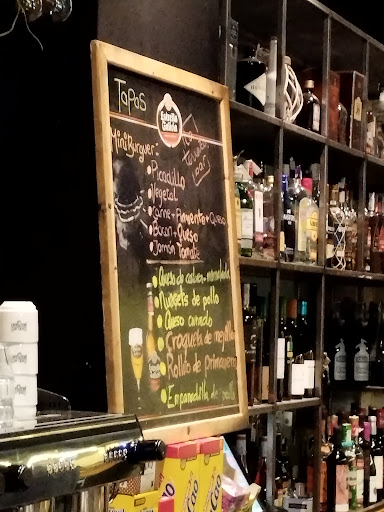 Tapas
Estrella
Galicia
MiniBurguer -
• Picadillo
• Vegetal
• Carne + Pimento + Queso
• Bacon + Queso
• Jamón Tomate
• Queso de + mermelada
• Nuggets de pollo
• Queso
• Croqueta de mejillo
• Rollito de primavera
• Empanadilla de